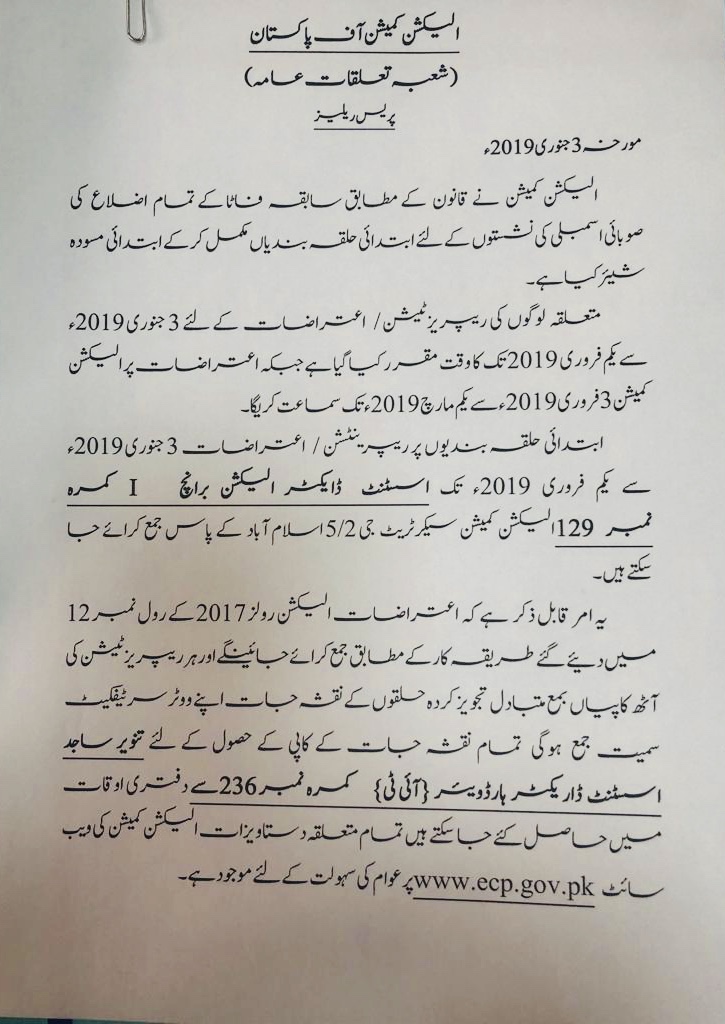 الیکشن کمیشن آف پاکستان
(شعبہ تعلقات عامہ)
پریس ریلیز
مورخہ 3 جنوری 2019ء
الیکشن کمیشن نے قانون کے مطابق سابقہ فاٹا کے تمام اضلاع کی
صوبائی اسمبلی کی نشستوں کے لئے ابتدائی حلقہ بندیاں مکمل کر کے ابتدائی مسودہ
شیئر کیا ہے۔
متعلقہ لوگوں کی ریپریزٹیشن / اعتراضات کے لئے 3 جنوری 2019ء
سے یکم فروری 2019 تک کا وقت مقرر کیا گیا ہے جبکہ اعتراضات پر الیکشن
کمیشن 3 فروری 2019ء سے یکم مارچ 2019ء تک سماعت کریگا۔
ابتدائی حلقہ بندیوں پر ریپرینٹشن / اعتراضات 3 جنوری 2019ء
سے یکم فروری 2019ء تک اسسٹنٹ ڈایکٹر الیکشن برانچ I کمرہ
نمبر 129 الیکشن کمیشن سیکرٹریٹ جی 5/2 اسلام آباد کے پاس جمع کرائے جا
سکتے ہیں۔
یہ امر قابل ذکر ہے کہ اعتراضات الیکشن رولز 2017 کے رول نمبر 12
میں دیئے گئے طریقہ کار کے مطابق جمع کرائے جائینگے اور ہر ریپریزٹیشن کی
آٹھ کاپیاں بمع متبادل تجویز کردہ حلقوں کے نقشہ جات اپنے ووٹر سرٹیفکیٹ
سمیت جمع ہوگی تمام نقشہ جات کے کاپی کے حصول کے لئے تنویر ساجد
اسسٹنٹ ڈاریکٹر ہارڈویئر {آئی ٹی} کمرہ نمبر 236 سے دفتری اوقات
میں حاصل کئے جا سکتے ہیں تمام متعلقہ دستاویزات الیکشن کمیشن کی ویب
سائٹ www.ecp.gov.pk پر عوام کی سہولت کے لئے موجود ہے۔